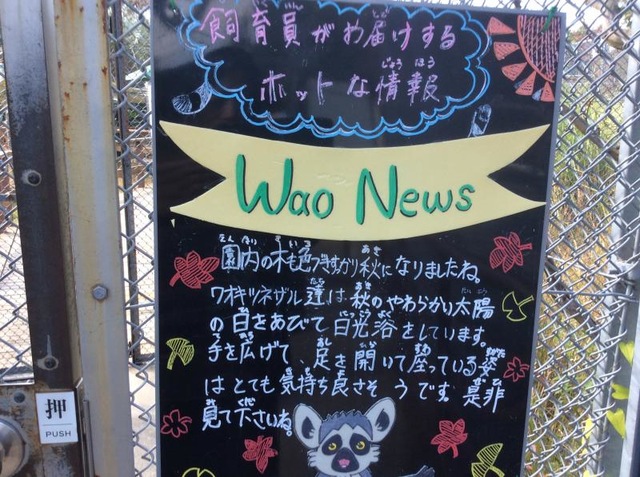 飼育員がお届けする
ホットな情報
じょう ほう
Wao News
園内の木も色づきすっかり秋になりましたね。
ワオキツネザル達は秋のやわらかい太陽
の日をあびて日光浴をしています。
手を広げて、足を開いて座っている姿
はとても気持ち良さそうです。是非
見て下さいね。
押
PUSH